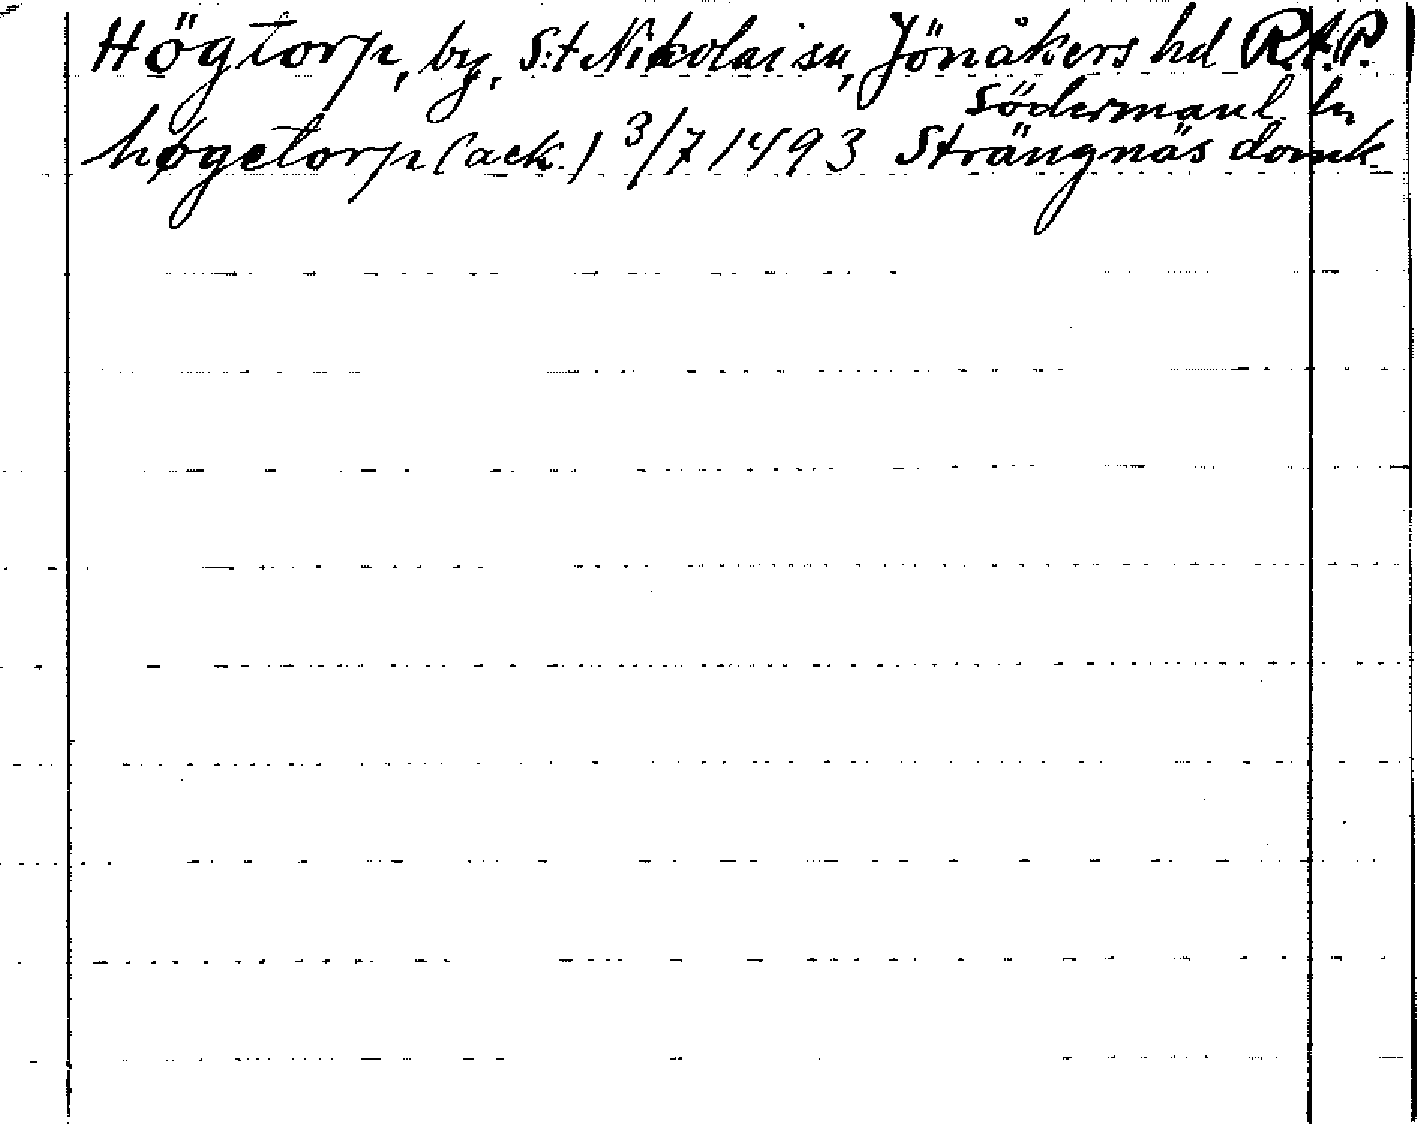 Högtorp, by, S:t Nikolai sn, Jönåkers hd R.A.P.
Södermanl. ln
høgetorp (ack.) 3/7 1493 Strängnäs domk.